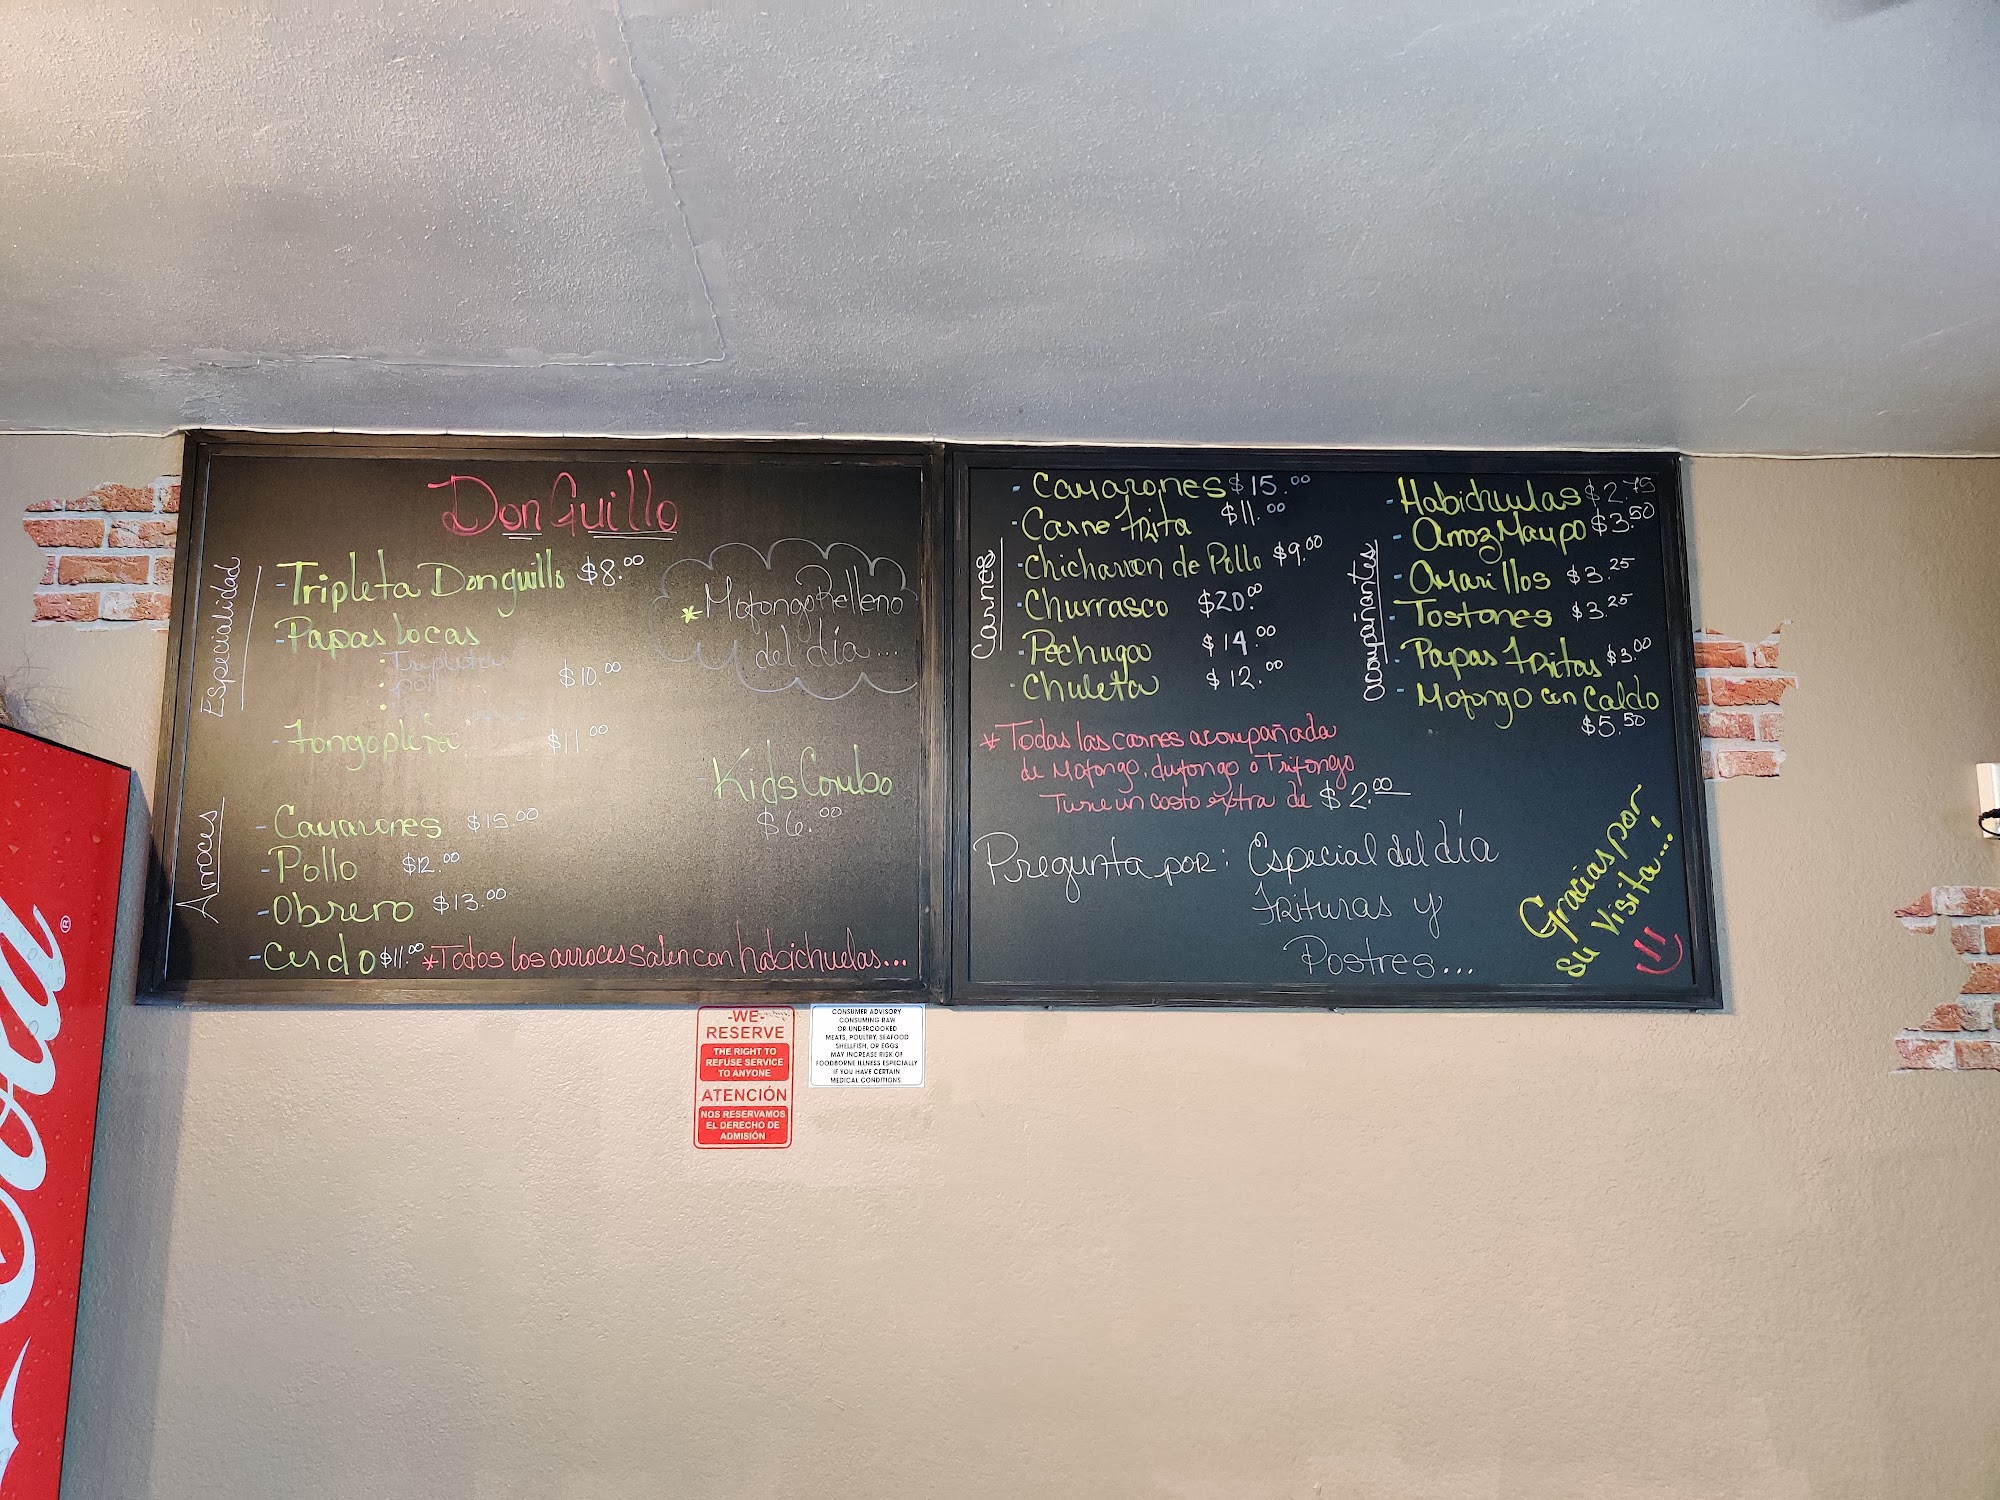 Don Guillo
Especialidad
- Tripleta Donguillo $8.00
- Papas locas
: Tripleta
: pollo
$10.00
- Fongopleta $11.00
* Mofongo Relleno
del día...
Kids Combo
$6.00
Arroces
- Camarones $15.00
- Pollo $12.00
- Obrero $13.00
- Cerdo $11.00 * Todos los arroces salen con habichuelas...
Carnes
- Camarones $15.00
- Carne Frita $11.00
- Chicharron de Pollo $9.00
- Churrasco $20.00
- Pechuga $14.00
- Chuleta $12.00
* Todas las carnes acompañada
de Mofongo, dufongo o Trifongo
Tiene un costo extra de $2.00
acompañantes
- Habichuelas $2.75
- Arroz Mampo $3.50
- Amarillos $3.25
- Tostones $3.25
- Papas Fritas $3.00
- Mofongo con Caldo
$5.50
Pregunta por: Especial del día
Frituras y
Postres...
Gracias por
su Visita...!
-WE-
RESERVE
THE RIGHT TO
REFUSE SERVICE
TO ANYONE
ATENCIÓN
NOS RESERVAMOS
EL DERECHO DE
ADMISIÓN
CONSUMER ADVISORY
CONSUMING RAW
OR UNDERCOOKED
MEATS, POULTRY, SEAFOOD
SHELLFISH, OR EGGS
MAY INCREASE RISK OF
FOODBORNE ILLNESS ESPECIALLY
IF YOU HAVE CERTAIN
MEDICAL CONDITIONS.